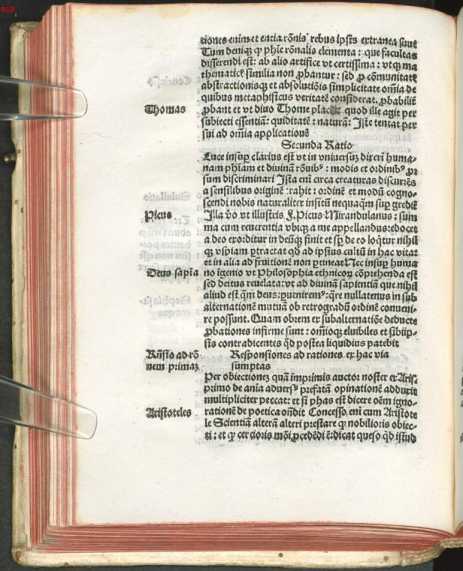 tiones enim et entia rōnis rebus ipsis extranea sint
Tum deniq; ꝙ phīe rōnalis elementa : que facultas
disserendi est: ab alio artifice vt certissima : vt q; ma
thematice similia non ꝓbantur : sed ꝓ cōmunitate
abstractionisq; et absolutiōis simplicitate omīa de
quibus metaphisicus veritatē considerat. ꝓbabilit
Thomas
ꝓbant et vt diuo Thome placet quod ille agit per
subiecti essentiā: quiditatē : naturā: Iste tentat per
sui ad omīa applicationē
Secunda Ratio
Luce insuꝑ clarius est vt in vniuersuꝫ diceri huma
nam phīam et diuinā
sum discriminari Ista eni circa creaturas discurrēs
a sensilibus originē trahit : ordinē et modū cogno
scendi nobis naturaliter insitū nequaqm̄ suꝑgredit
Picus
Illa v̄o vt illustris J. Picus Mirandulanus : sum
ma cum reuerentia vbiq; a me appellandus: edocet
a deo exorditur in deūq; finit et sꝑ de eo loqtur nihil
ꝙ vspiam ptractat qd ad ipsius cultū in hac vita
et in alia ad fruitionē non ptineat Nec insuꝑ huma
Deus sapīa
no igenio vt Philosophia ethnicoꝝ cōprehenda est
sed deitus reuelata: vt ad diuinā sapientiā que nihil
aliud est qm̄ deus: puenirem: qre nullatenus in sub
alternationē mutuā ob retrogradū ordinē conueni
re possunt. Quam obrem ex subalternatiōe deducte
ꝓbationes infirme sunt : omnioq; eluibiles et sibiip
sis contradicentes qd postea liquidius patebit
Rn̄sio ad rō
nem primaꝫ
Responsiones ad rationes ex hac via
sumptas
Per obiectioneꝫ quā imprimis auctor noster ex Aris.
primo de anīa aduersꝰ prefatā opinationē adduxit
multipliciter peccat: et si phas est dicere oēm igno-
Aristoteles
rationē de poetica on̄dit Concesso. eni cum Aristote
le Scientiā alterā alteri prestare ꝙ nobilioris obiec-
ti : et ꝙ certioris mōi ꝓcedēdi ē: dicat queso qd istud